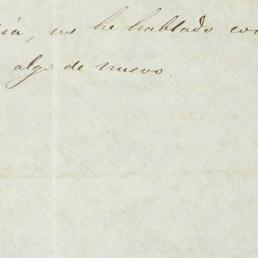 sia, no he hablado con
algo de nuevo.